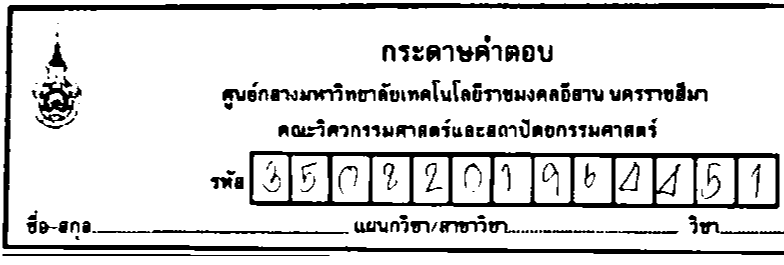 กระดาษคำตอบ
ศูนย์กลางมหาวิทยาลัยเทคโนโลยีราชมงคลอีสาน นครราชสีมา
คณะวิศวกรรมศาสตร์และสถาปัตยกรรมศาสตร์
รหัส 3 5 0 2 2 0 1 9 6 4 4 5 1
ชื่อ-สกุล........................ แผนกวิชา/สาขาวิชา........................ วิชา............